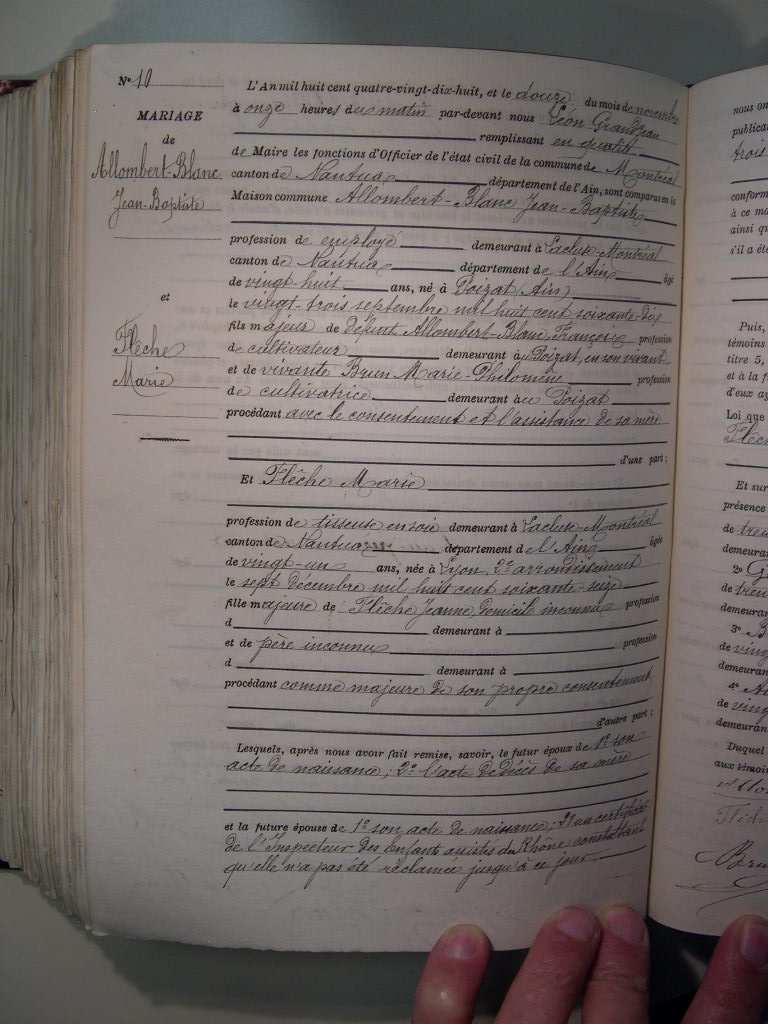 N° 10
MARIAGE
de
Allombert-Blanc
Jean-Baptiste
et
Flèche
Marie
L'An mil huit cent quatre-vingt-dix-huit, et le douze du mois de novembre
à onze heures du matin par-devant nous Léon Grandjean
remplissant en qualité
de Maire les fonctions d'Officier de l'état civil de la commune de Montréal
canton de Nantua département de l'Ain, sont comparus en la
Maison commune Allombert-Blanc Jean-Baptiste
profession de employé demeurant à Lacluse-Montréal
canton de Nantua département de l'Ain âgé
de vingt-huit ans, né à Poizat (Ain)
le vingt-trois septembre mil huit cent soixante-dix
fils majeur de défunt Allombert-Blanc, François profession
de cultivateur demeurant à Poizat, en son vivant
et de vivante Brun Marie-Philomène profession
de cultivatrice demeurant à au Poizat
procédant avec le consentement et l'assistance de sa mère
d'une part;
Et Flèche Marie
profession de tisseuse en soie demeurant à Lacluse-Montréal
canton de Nantua département de l'Ain âgée
de vingt-un ans, née à Lyon, 2e arrondissement
le sept décembre mil huit cent soixante-seize
fille majeure de Flèche Jeanne, Domicile inconnu profession
d demeurant à
et de père inconnu profession
d demeurant à
procédant comme majeure de son propre consentement
d'autre part;
Lesquels, après nous avoir fait remise, savoir, le futur époux de 1° son
acte de naissance; 2° l'acte de Décès de sa mère
et la future épouse de 1° son acte de naissance; 2° un certificat
de l'Inspecteur des Enfants assistés du Rhône constatant
qu'elle n'a pas été réclamée jusqu'à ce jour.
nous on
publica
trois
conform
à ce ma
ainsi qu
s'il a été
Puis,
témoins
titre 5,
et à la f
d'eux ay
Loi que
Flèch
Et sur
présence
de tren
demeuran
2° G
de tren
demeuran
3° B
de ving
demeuran
4° Al
de ving
demeuran
Duquel
aux témoin
Bru